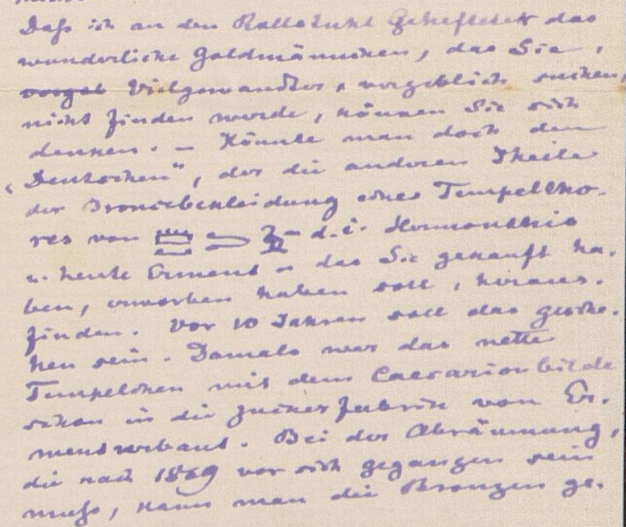 Daß ich an den Rollstuhl Gefesselter das
wunderliche Goldmännchen, das Sie,
vorgeb Vielgewandter, vergeblich suchen,
nicht finden werde, können Sie sich
denken. – Könnte man doch den
"Deutschen", der die anderen Theile
der Broncebekleidung eines Tempeltho-
res von d. i. Hermonthis
u. heute Erment – das Sie gekauft ha-
ben, erworben haben soll, heraus-
finden. Vor 10 Jahren soll das gesche-
hen sein. Damals war das nette
Tempelchen mit dem Caesarionbilde
schon in die Zuckerfabrik von Er-
ment verbaut. Bei der Abräumung,
die nach 1869 vor sich gegangen sein
muß, kann man die Bronzen ge-